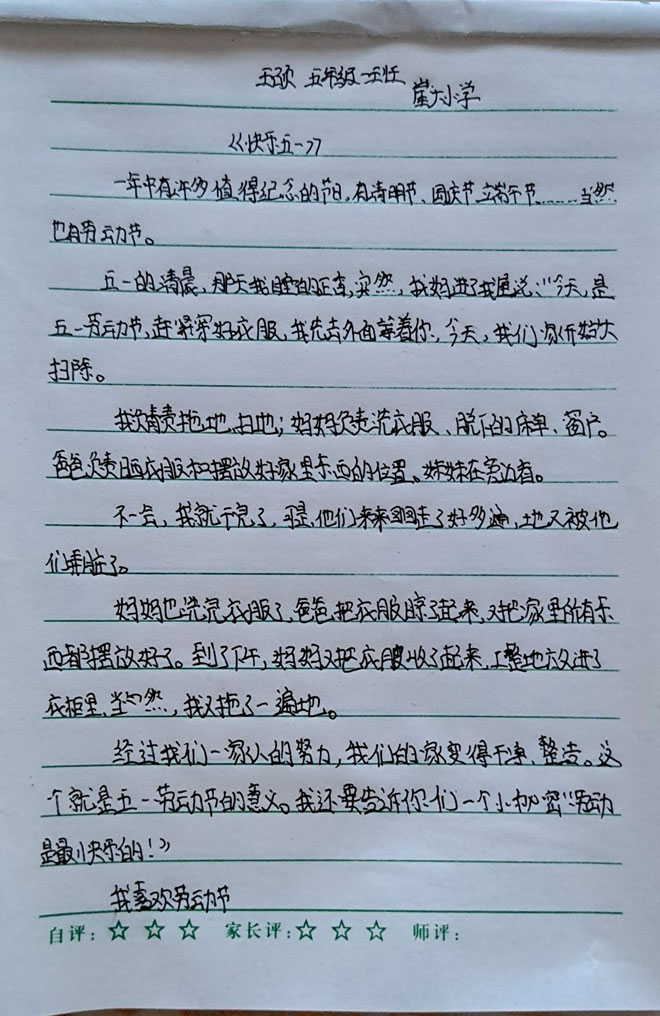 五年级一班 崖大小学
《快乐五一》
一年中有许多值得纪念的节日,有清明节、国庆节、端午节……当然
也有劳动节。
五一的清晨,那天我睡的正香,突然,我妈进了我屋说:“今天,是
五一劳动节,赶紧穿好衣服,我先去外面等着你,今天,我们家作好大
扫除。
我负责拖地、扫地;妈妈负责洗衣服、脱下的床单、窗户。
爸爸负责晒衣服和摆放好家里东西的位置。妹妹在旁边看。
不一会,我就干完了,可是,他们来来回回走了好多遍,地又被他
们弄脏了。
妈妈也洗完衣服了,爸爸把衣服晾了起来,又把家里所有东
西都摆放好了。到了下午,妈妈又把衣服收了起来,工整地放进了
衣柜里,当然,我又拖了一遍地。
经过我们一家人的努力,我们的家变得干净、整洁。这
个就是五一劳动节的意义。我还要告诉你们一个小秘密“劳动
是最快乐的!”
我喜欢劳动节
自评:☆ ☆ ☆ 家长评:☆ ☆ ☆ 师评: